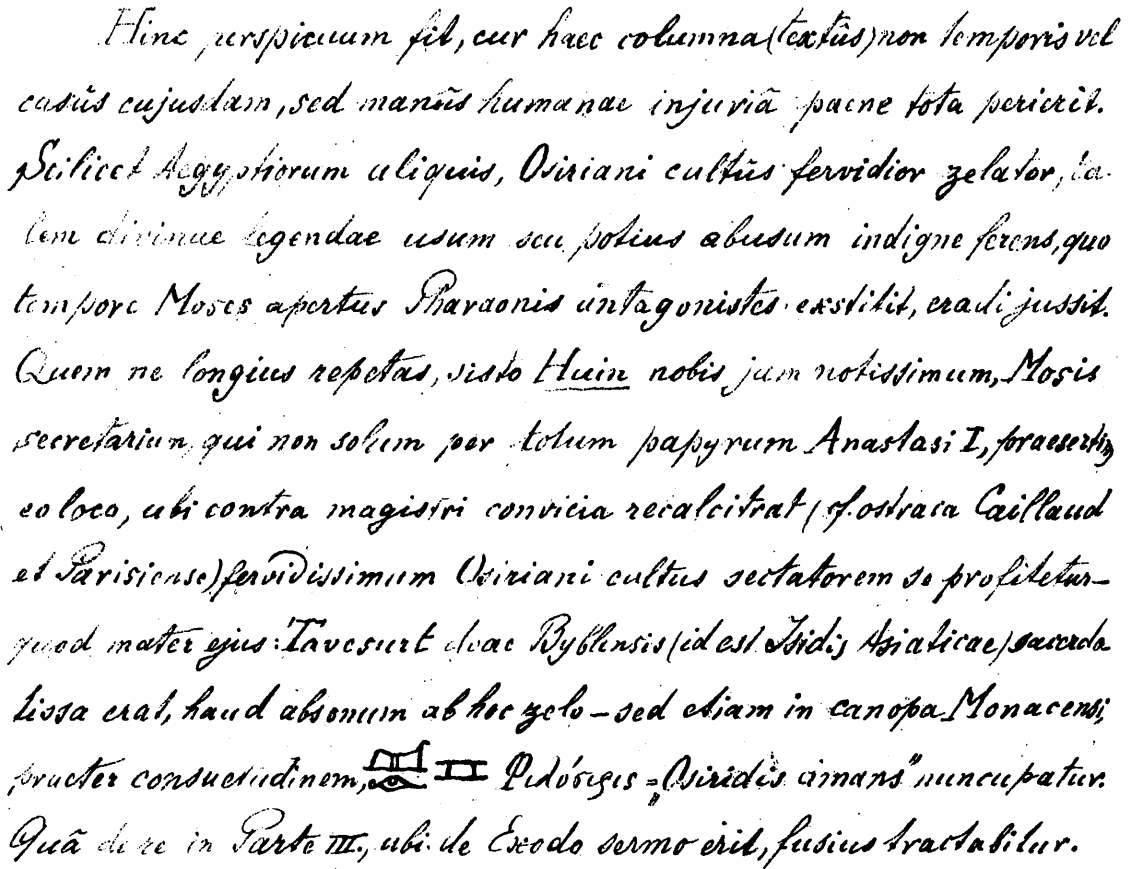 Hinc perspicuum fit, cur haec columna (textûs) non temporis vel
casûs cujusdam, sed manûs humanae injuriâ paene tota perierit.
Scilicet Aegyptiorum aliquis, Osiriani cultûs fervidior zelator, ta-
lem divinae legendae usum seu potius abusum indigne ferens, quo
tempore Moses apertus Pharaonis antagonistes exstitit, eradi jussit.
Quem ne longius repetas, sisto Huin nobis jam notissimum, Mosis
secretarium, qui non solum per totum papyrum Anastasi I, praesertim
eo loco, ubi contra magistri convicia recalcitrat (cf. ostraca Caillaud
et Parisiense) fervidissimum Osiriani cultus sectatorem se profitetur —
quod mater ejus: Tavesurt deae Byblensis (id est Isidis Asiaticae) sacerdo
tissa erat, haud absonum ab hoc zelo — sed etiam in canopa Monacensi,
praeter consuetudinem, Φιλόσιρις = „Osiridis amans" nuncupatur.
Quâ de re in Parte III., ubi de Exodo sermo erit, fusius tractabitur.